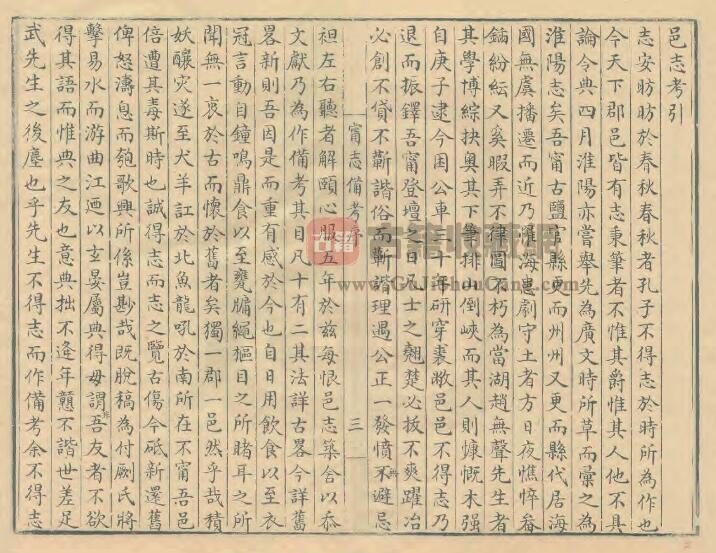 邑志考引
志安昉昉於春秋春秋者孔子不得志於時所為作也
今天下郡邑皆有志秉筆者不惟其爵惟其人他不具
論今典四月淮陽亦嘗舉先為廣文時所草而彙之為
淮陽志矣吾甯古鹽官縣更而州州又更而縣代居海
國無虞播遷而近乃濱海患劇守土者方日夜憔悴畚
鍤紛紜又奚暇弄不律圖不朽為當湖趙無聲先生者
其學博綜抉奧其下筆排山倒峽而其人則慷慨木強
自庚子逮今困公車二十年研穿裘敝邑邑不得志乃
退而振鐸吾甯登壇之日凡士之翹楚必拔不爽躍冶
必創不貸不蘄諧俗而蘄諧理遇公正一發憤不避忌
甯志備考序
三
袒左右聽者解頤心服五年於茲每恨邑志築舍以忝
文獻乃為作備考其目凡十有二其法詳古畧今詳舊
畧新則吾因是而重有感於今也自日用飲食以至衣
冠言動自鐘鳴鼎食以至甕牖繩樞目之所睹耳之所
聞無一衷於古而懷於舊者矣獨一郡一邑然乎哉積
妖釀灾遂至犬羊訌於北魚龍吼於南所在不甯吾邑
倍遭其毒斯時也誠得志而志之覽古傷今砥新還舊
俾怒濤息而匏歌興所係豈尠哉既脫稿為付劂氏將
擊易水而游曲江迺以玄晏屬典得毋謂吾友者不欲
得其語而惟典之友也意典拙不逢年戇不諧世差足
武先生之後塵也乎先生不得志而作備考余不得志
古籍收藏網
www.GuJiShouCang.com